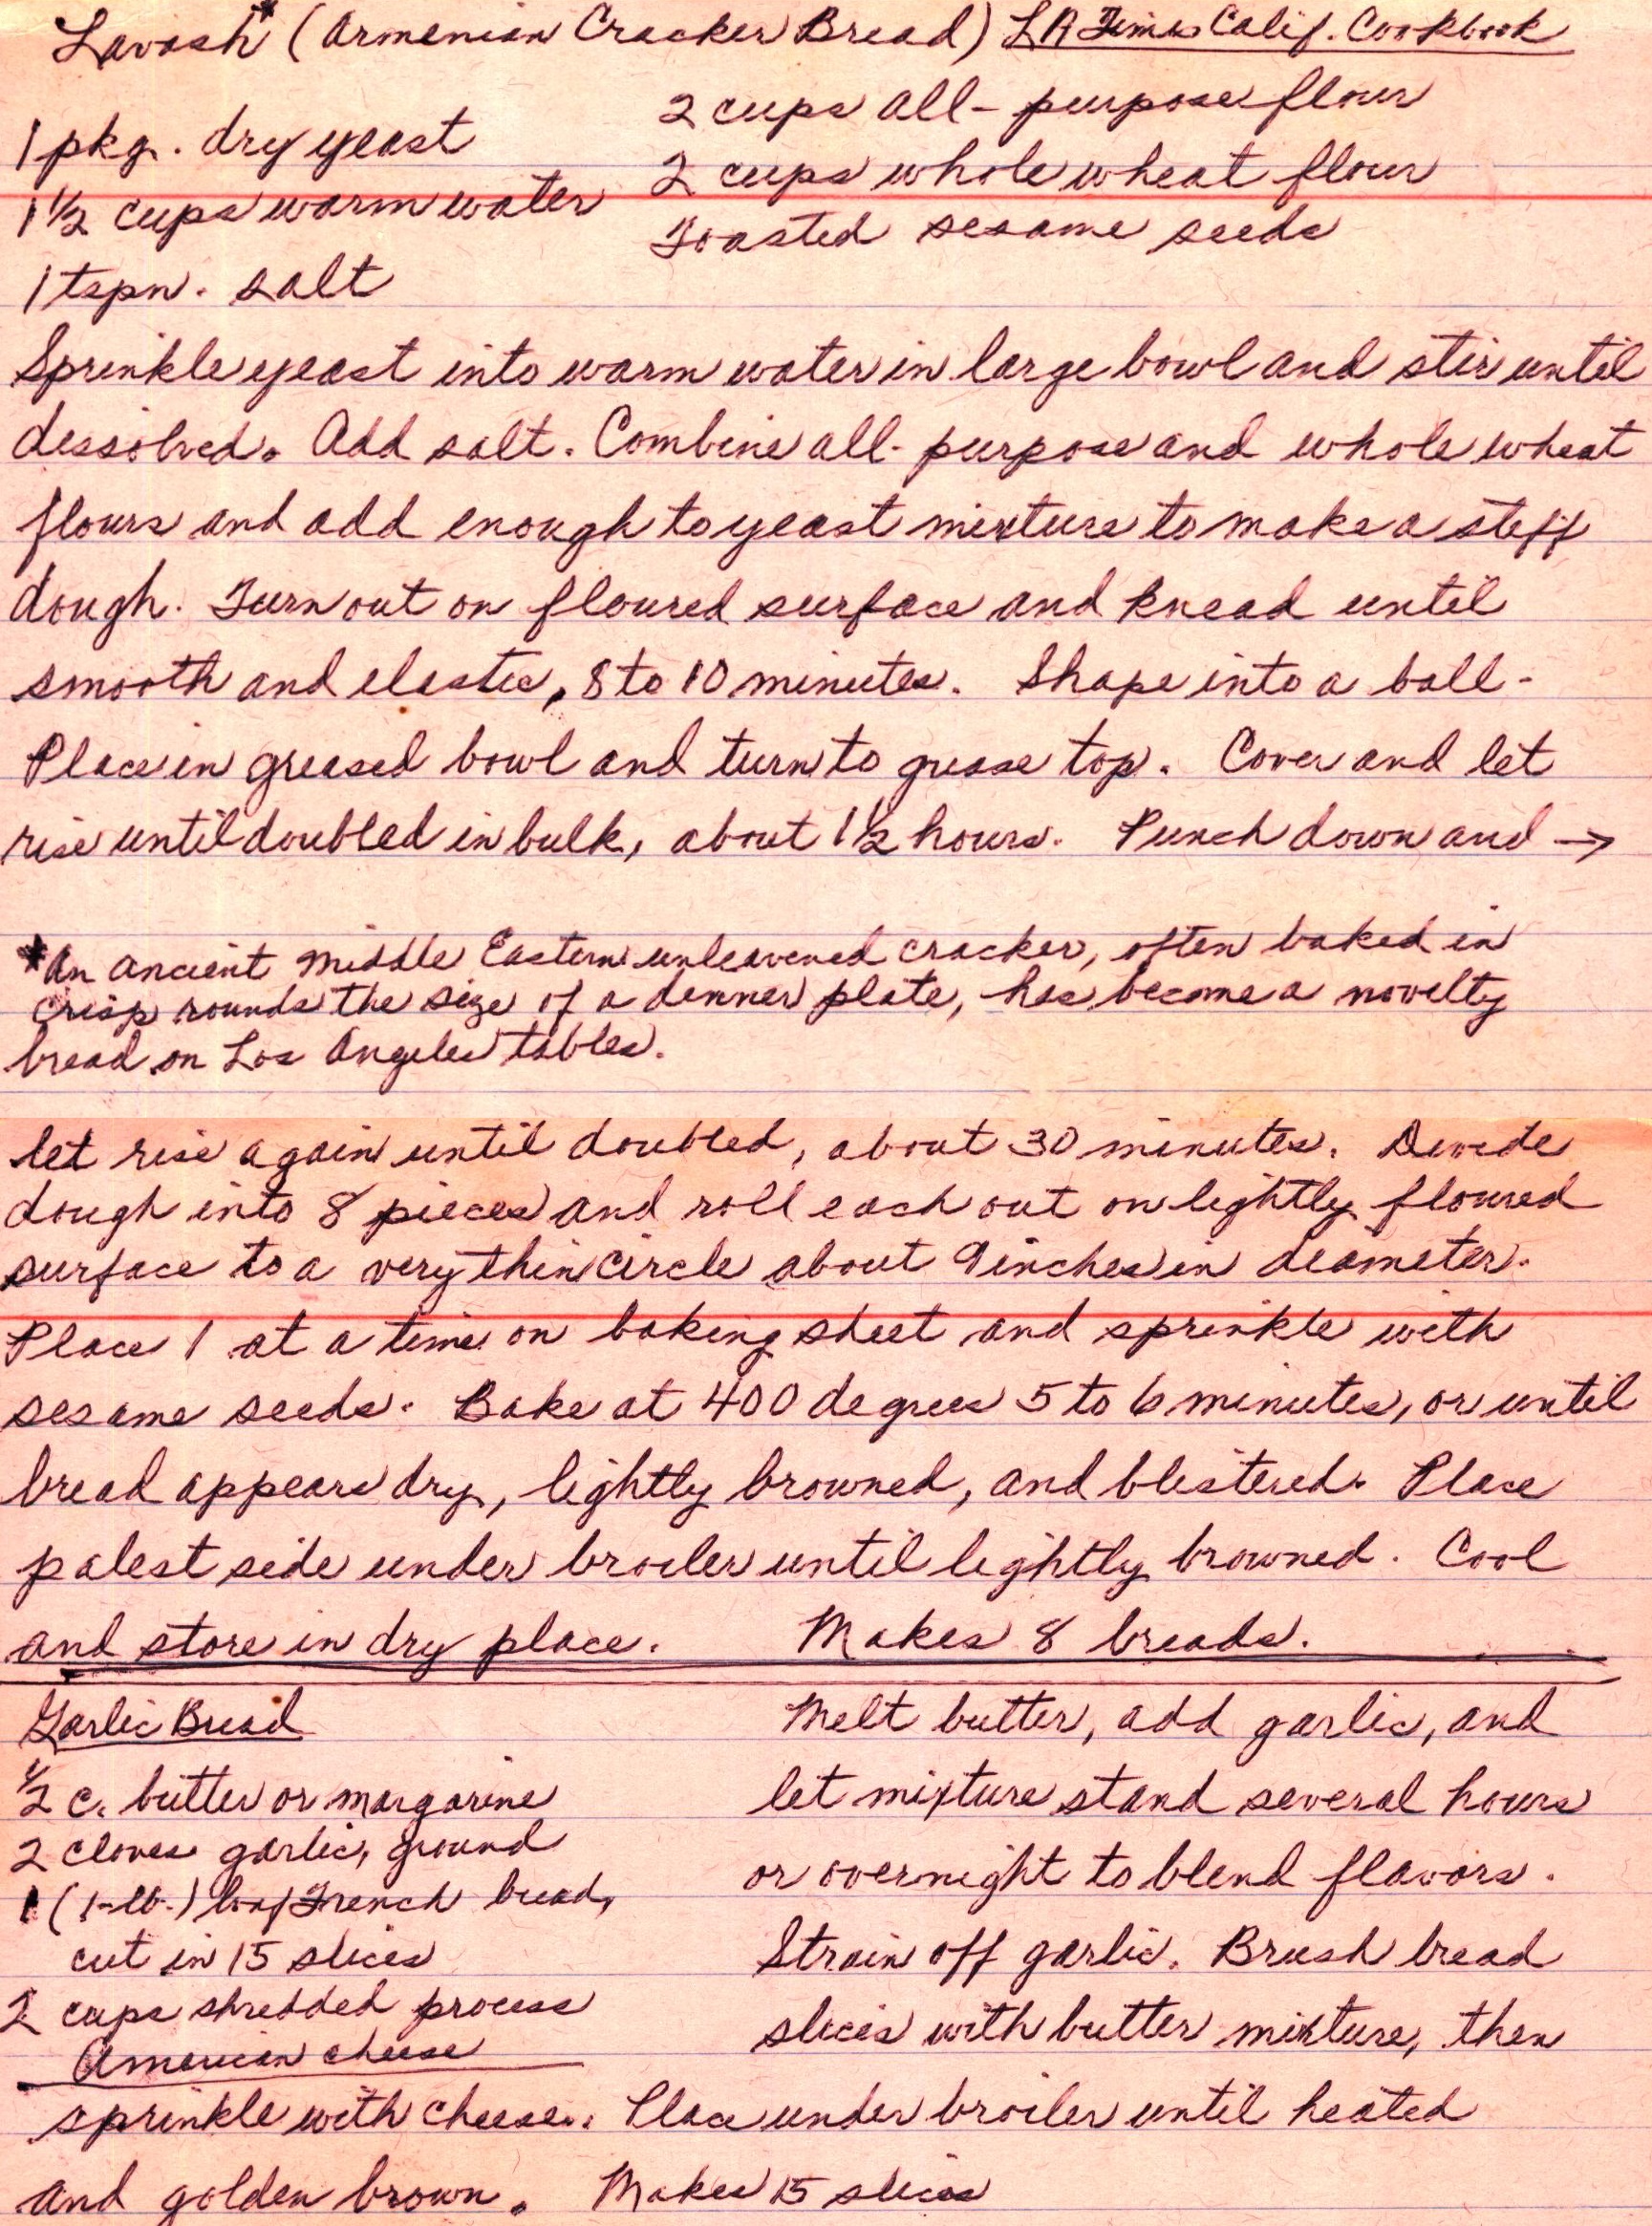 Lavosh* (Armenian Cracker Bread) LA Times Calif. Cookbook
1 pkg. dry yeast
1 1/2 cups warm water
1 tspn. salt
2 cups all-purpose flour
2 cups whole wheat flour
Toasted sesame seeds
Sprinkle yeast into warm water in large bowl and stir until
dissolved. Add salt. Combine all-purpose and whole wheat
flours and add enough to yeast mixture to make a stiff
dough. Turn out on floured surface and knead until
smooth and elastic, 8 to 10 minutes. Shape into a ball.
Place in greased bowl and turn to grease top. Cover and let
rise until doubled in bulk, about 1 1/2 hours. Punch down and →
*An ancient Middle Eastern unleavened cracker, often baked in
crisp rounds the size of a dinner plate, has become a novelty
bread on Los Angeles tables.
let rise again until doubled, about 30 minutes. Divide
dough into 8 pieces and roll each out on lightly floured
surface to a very thin circle about 9 inches in diameter.
Place 1 at a time on baking sheet and sprinkle with
sesame seeds. Bake at 400 degrees 5 to 6 minutes, or until
bread appears dry, lightly browned, and blistered. Place
palest side under broiler until lightly browned. Cool
and store in dry place. Makes 8 breads.
Garlic Bread
1/2 c. butter or margarine
2 cloves garlic, ground
1 (1-lb.) loaf French bread,
cut in 15 slices
2 cups shredded process
American cheese
Melt butter, add garlic, and
let mixture stand several hours
or overnight to blend flavors.
Strain off garlic. Brush bread
slices with butter mixture, then
sprinkle with cheese. Place under broiler until heated
and golden brown. Makes 15 slices